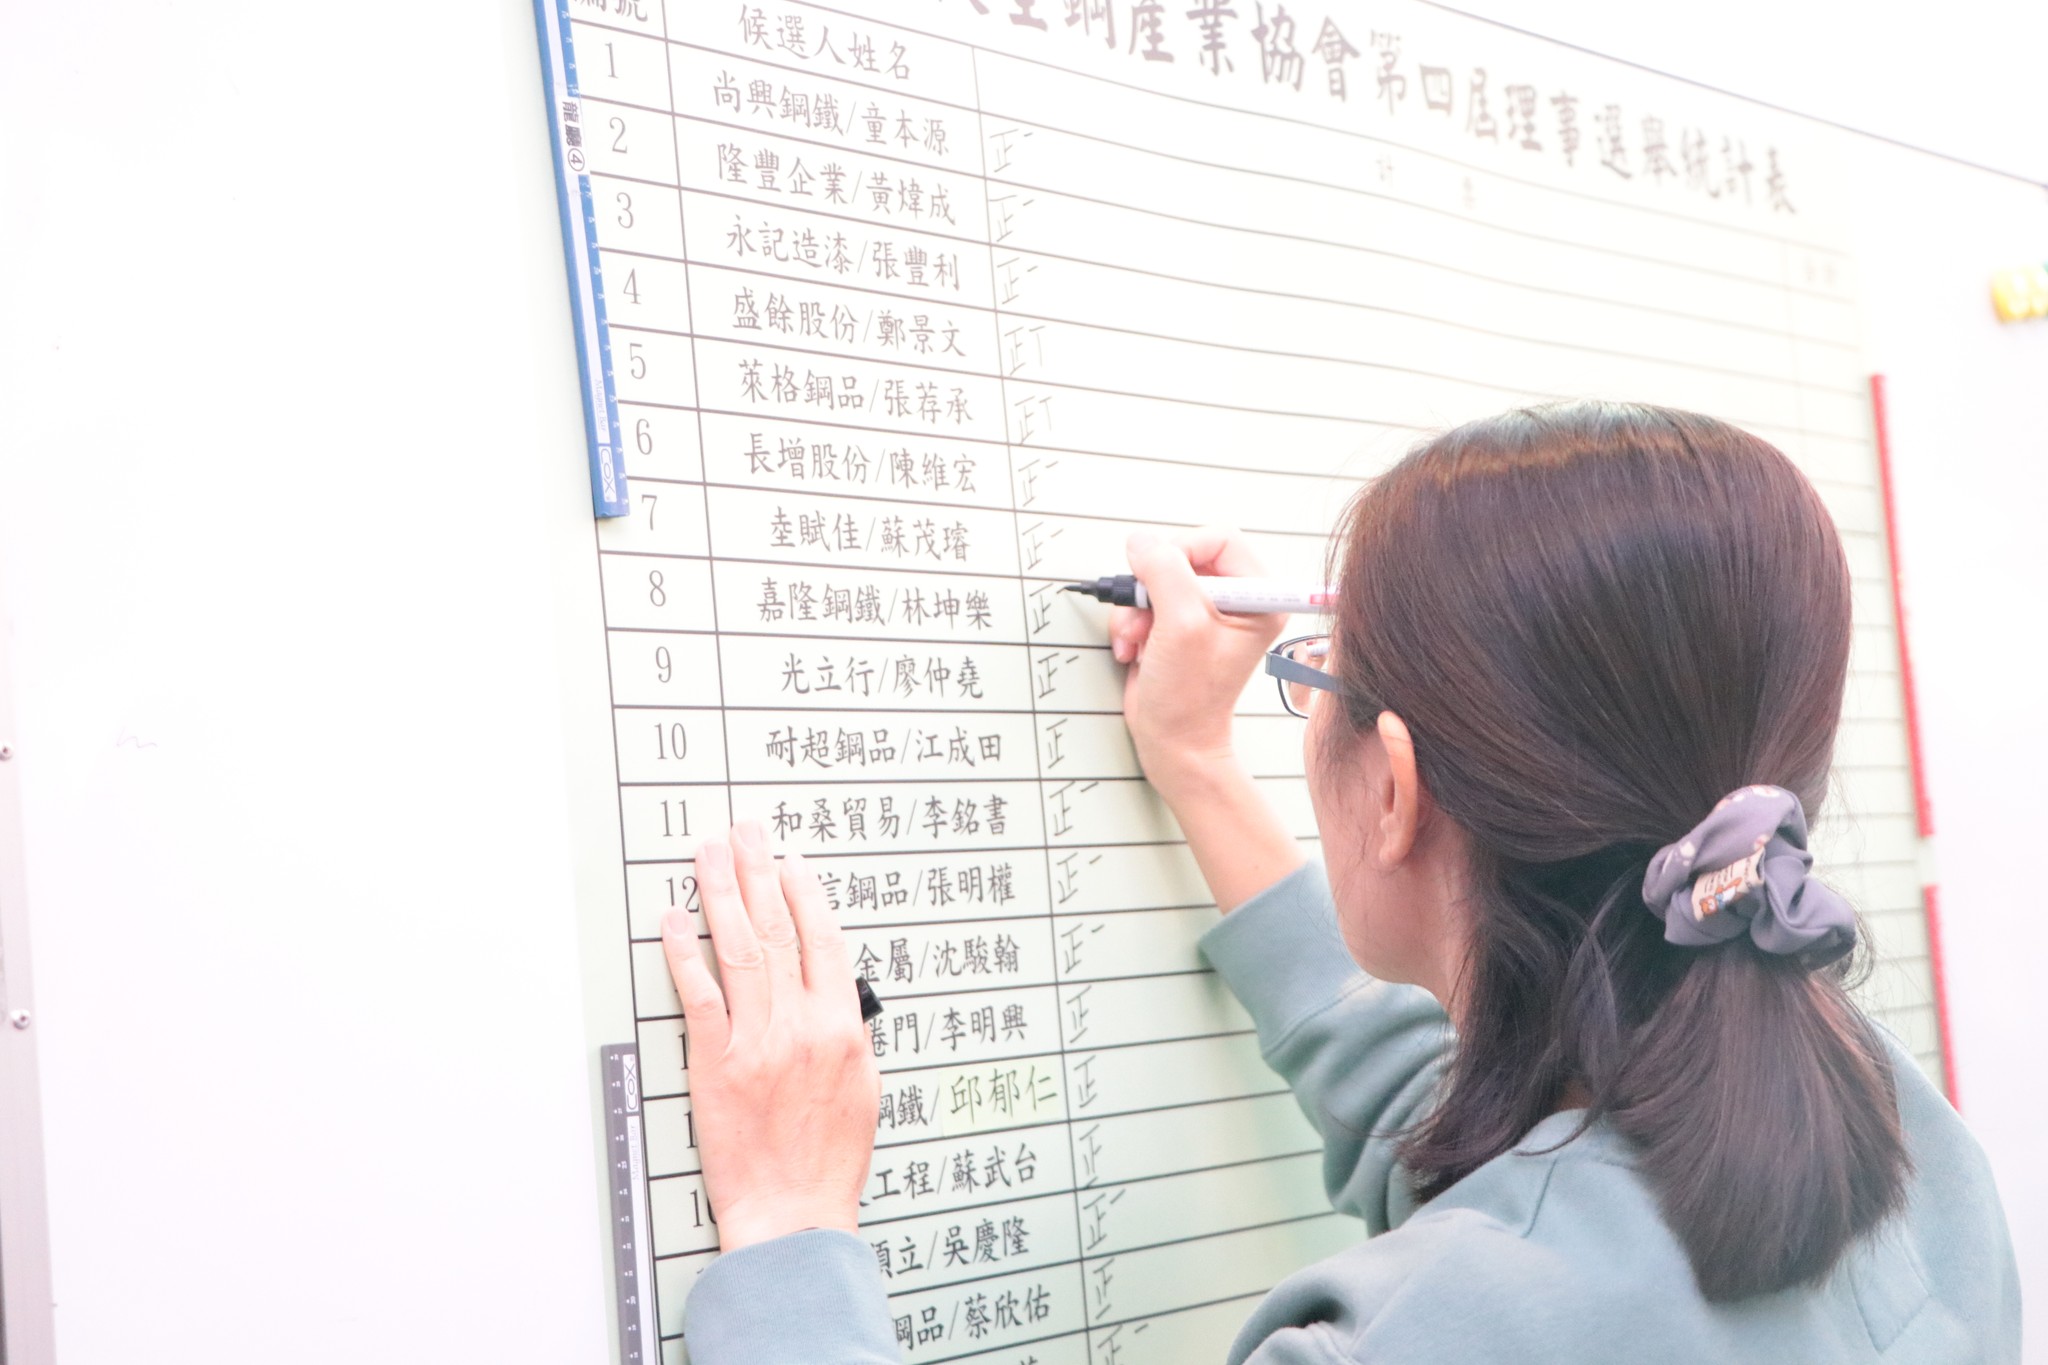 型鋼產業協會第四屆理事選舉統計表
編號 候選人姓名 計 票
1 尚興鋼鐵/童本源 正一
2 隆豐企業/黃煒成 正一
3 永記造漆/張豐利 正一
4 盛餘股份/鄭景文 正T
5 萊格鋼品/張荐承 正T
6 長增股份/陳維宏 正一
7 坴賦佳/蘇茂璿 正一
8 嘉隆鋼鐵/林坤樂 正一
9 光立行/廖仲堯 正一
10 耐超鋼品/江成田 正
11 和桑貿易/李銘書 正一
12 信鋼品/張明權 正一
金屬/沈駿翰 正一
捲門/李明興 正
鋼鐵/邱郁仁 正
工程/蘇武台 正
順立/吳慶隆 正一
鋼品/蔡欣佑 正
COX
COX